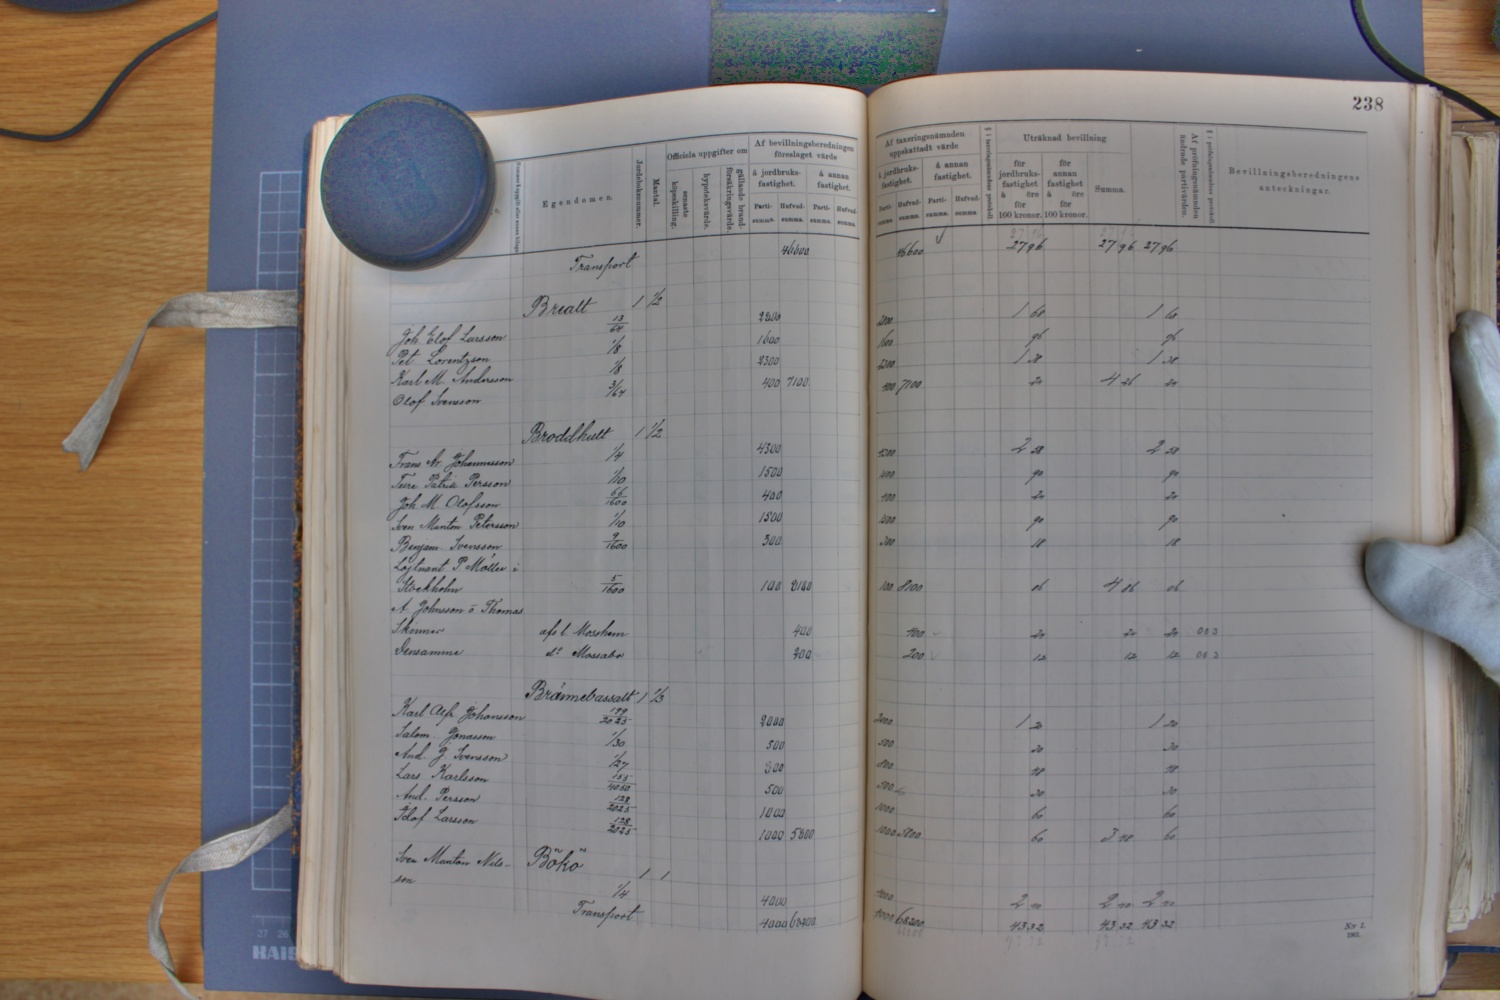 238
Egendomen.
Jordeboksnummer.
Mantal.
Officiela uppgifter om
senaste köpeskilling.
hypoteksvärde.
gällande brandförsäkringsvärde.
Af bevillningsberedningen föreslaget värde
å jordbruksfastighet.
å annan fastighet.
Partisumma.
Hufvudsumma.
Partisumma.
Hufvudsumma.
Af taxeringsnämnden uppskattadt värde
å jordbruksfastighet.
å annan fastighet.
Partisumma.
Hufvudsumma.
Partisumma.
Hufvudsumma.
Uträknad bevillning
för jordbruksfastighet à öre för 100 kronor.
för annan fastighet à öre för 100 kronor.
Summa.
Af pröfningsnämnden ändrade partivärden.
Bevillningsberedningens anteckningar.
Transport 46600 46600 27 96 27 96 27 96
Brealt 1 1/2
Joh. Elof Larsson 13/64 2800 1 60 1 60
Pet. Lorentzson 1/8 1600 1600 96 96
Karl M. Andersson 1/8 2300 2300 1 38 1 38
Olof Svensson 3/64 400 7100 400 7100 24 4 26 24
Broddhult 1 1/2
Frans Ar. Johannesson 1/4 4300 4300 2 58 2 58
Ture Patrik Persson 1/10 1500 90 90
Joh. M. Olofsson 66/1600 400 400 24 24
Sven Manton Petersson 1/10 1500 1500 90 90
Benjam. Svensson 9/1600 300 300 18 18
Löjtnant P Möller i
Stockholm 5/1600 100 100 8100 06 4 86 06
A. Johnsson o Thomas
Skinner afs l. Mosshem 400 400 24 24 24
Densamme do Mossabo 200 200 12 12 12
Brännebassalt 1 1/3
Karl Alfr. Johansson 199/2025 2000 2000 1 20 1 20
Salom. Jonasson 1/30 500 500 30 30
And. G. Svensson 1/27 800 800 48 48
Lars Karlsson 155/4050 500 500 30 30
And. Persson 128/2025 1000 1000 60 60
Elof Larsson 128/2025 1000 5800 1000 5800 60 3 48 60
Bökö 1 1
Sven Manton Nils-
son 1/4 4000 4000 2 40 2 40 2 40
Transport 4000 68200 4000 68200 43 32 43 32 43 32
No 1.
1902.
27 26
HAIS